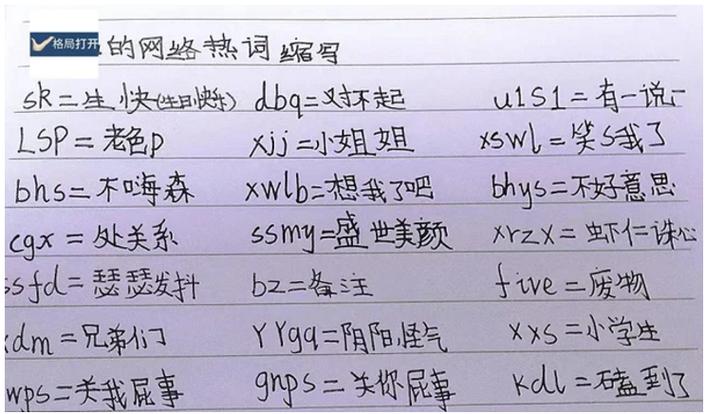 格局打开 的网络热词缩写
sk=生快(生日快乐) dbq=对不起 u1s1=有一说一
LSP=老色p xjj=小姐姐 xswl=笑s我了
bhs=不嗨森 xwlb=想我了吧 bhys=不好意思
cgx=处关系 ssmy=盛世美颜 xrzx=虾仁诛心
ssfd=瑟瑟发抖 bz=备注 five=废物
xdm=兄弟们 YYgq=阴阳怪气 xxs=小学生
wps=关我屁事 gnps=关你屁事 kdl=磕到了